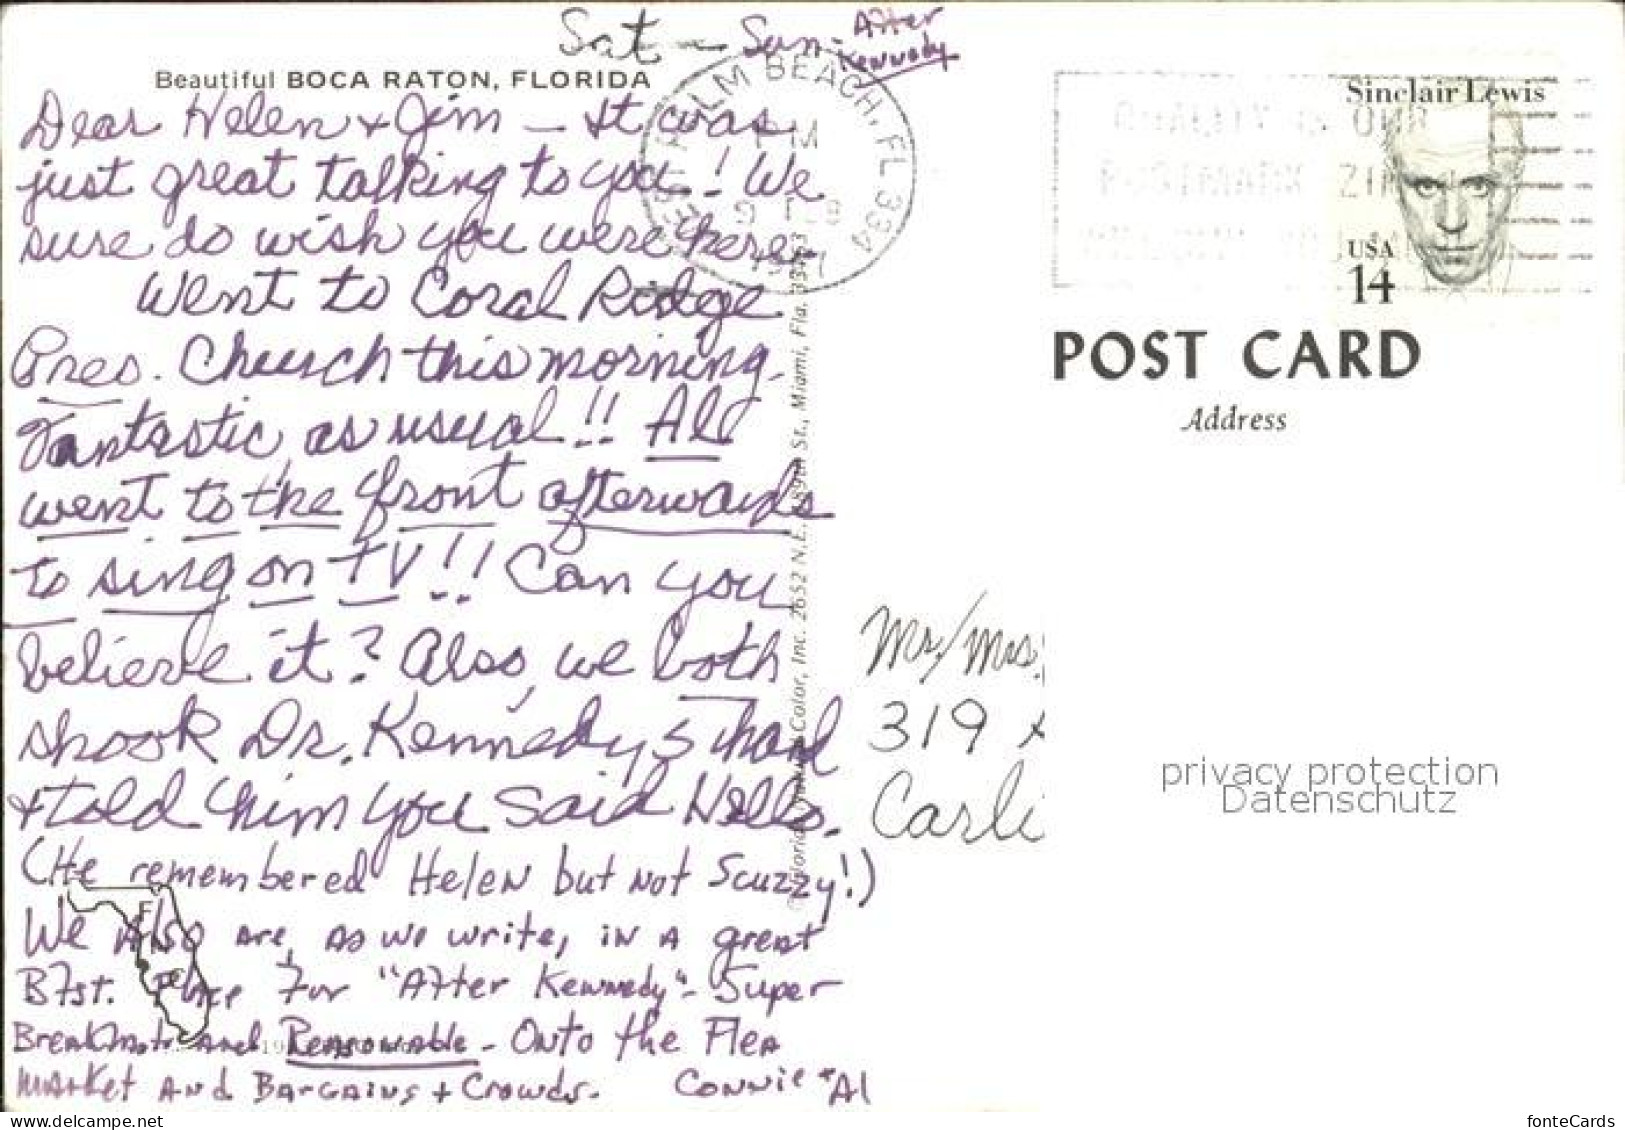 Sat — Sun - After
Kennedy
Beautiful BOCA RATON, FLORIDA
Dear Helen + Jim — It was
just great talking to you! We
sure do wish you were here.
Went to Coral Ridge
Pres. Church this morning.
Fantastic, as usual!! Al
went to the front afterwards
to sing on TV!! Can you
believe it? Also, we both
shook Dr. Kennedy's hand
+ told him you said Hello.
(He remembered Helen but not Scuzzy!)
We Also are, as we write, in a great
Bfst. Place for "After Kennedy" - Super
Breakfast and Reasonable - Onto the Flea
Market and Bargains + Crowds. Connie + Al
PALM BEACH, FL 334
PM
1987
Color, Inc. 2652 N.E. 189th St., Miami, Fla.
Sinclair Lewis
USA
14
POST CARD
Address
Mr/Mrs.
319
Carli
privacy protection
Datenschutz
delcampe.net
fonteCards